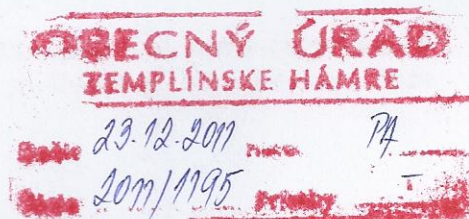 OBECNÝ ÚRAD
ZEMPLÍNSKE HÁMRE
23.12.2011 PA
2011/1195 Prílohy -